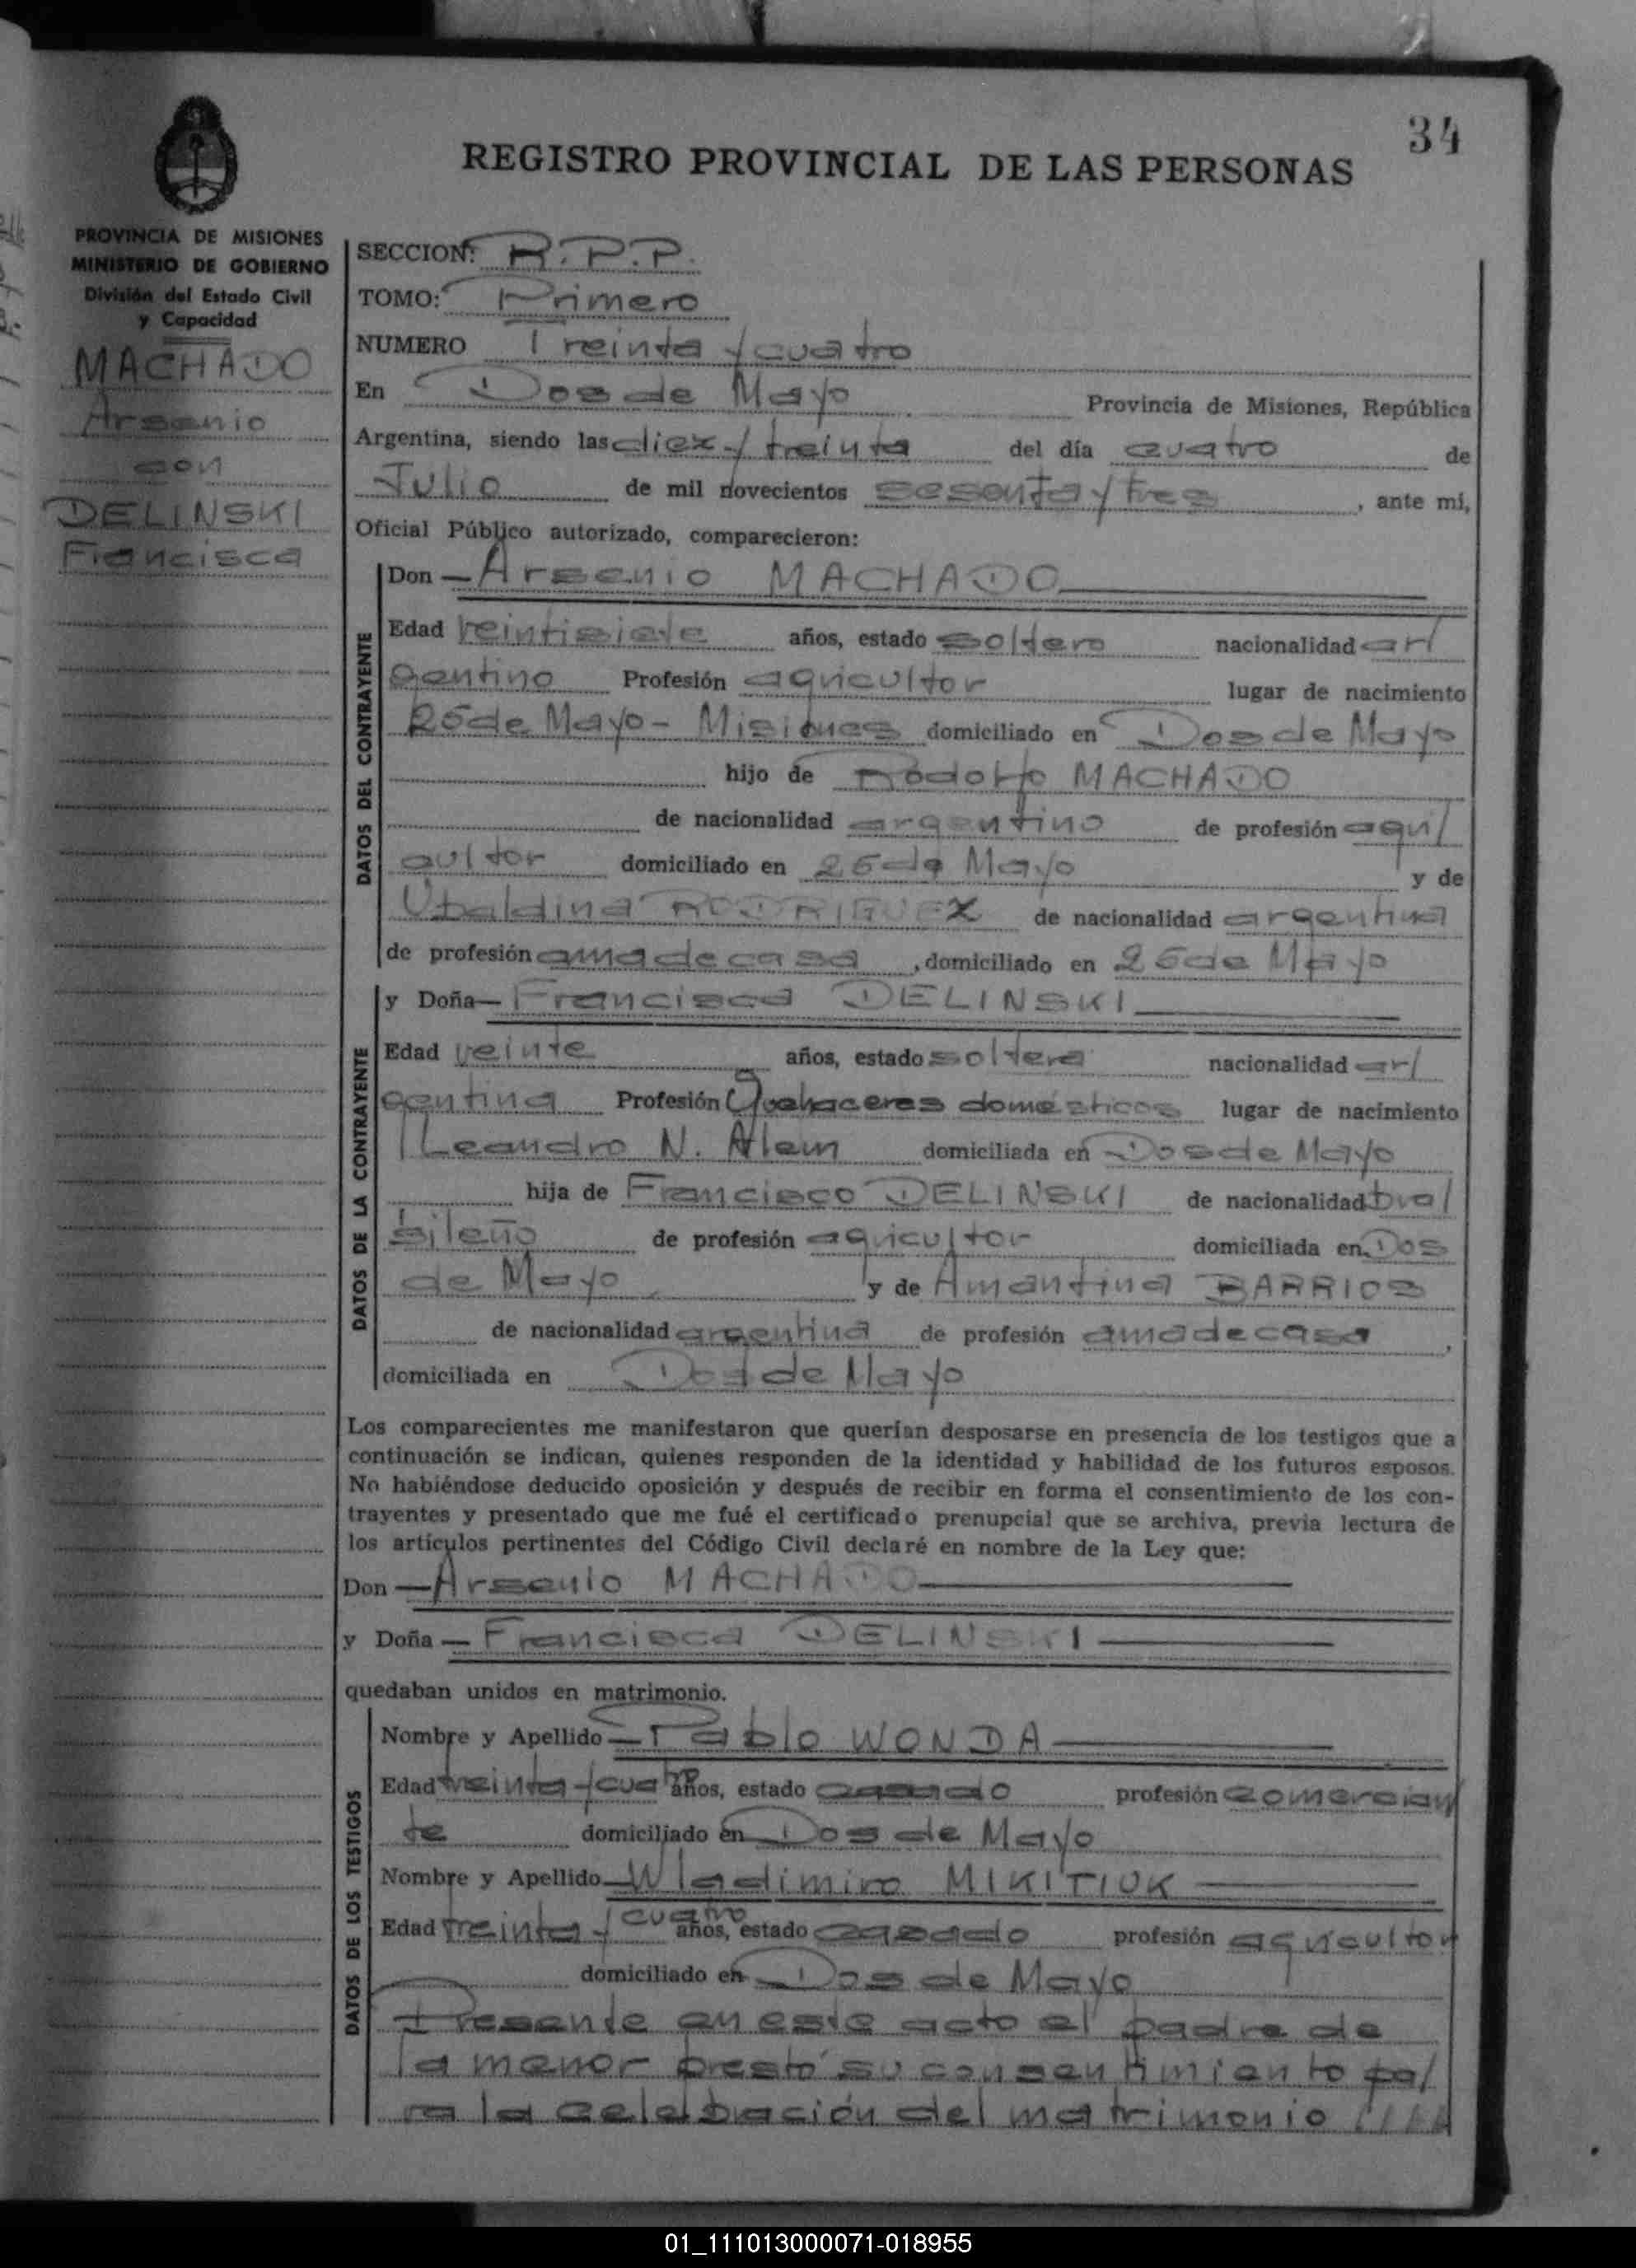 34
REGISTRO PROVINCIAL DE LAS PERSONAS
PROVINCIA DE MISIONES
MINISTERIO DE GOBIERNO
División del Estado Civil
y Capacidad
MACHADO
Arsenio
con
DELINSKI
Francisca
SECCION: R.P.P.
TOMO: Primero
NUMERO Treinta y cuatro
En Dos de Mayo Provincia de Misiones, República
Argentina, siendo las diez y treinta del día cuatro de
Julio de mil novecientos sesenta y tres, ante mi,
Oficial Público autorizado, comparecieron:
DATOS DEL CONTRAYENTE
Don — Arsenio MACHADO
Edad veintisiete años, estado soltero nacionalidad ar/
gentino Profesión agricultor lugar de nacimiento
25 de Mayo - Misiones domiciliado en Dos de Mayo
hijo de Rodolfo MACHADO
de nacionalidad argentino de profesión agri/
cultor domiciliado en 25 de Mayo y de
Ubaldina RODRIGUEZ de nacionalidad argentina
de profesión ama de casa, domiciliado en 25 de Mayo
DATOS DE LA CONTRAYENTE
y Doña — Francisca DELINSKI
Edad veinte años, estado soltera nacionalidad ar/
gentina Profesión Quehaceres domésticos lugar de nacimiento
Leandro N. Alem domiciliada en Dos de Mayo
hija de Francisco DELINSKI de nacionalidad bra/
sileño de profesión agricultor domiciliada en Dos
de Mayo y de Amantina BARRIOS
de nacionalidad argentina de profesión ama de casa,
domiciliada en Dos de Mayo
Los comparecientes me manifestaron que querían desposarse en presencia de los testigos que a
continuación se indican, quienes responden de la identidad y habilidad de los futuros esposos.
No habiéndose deducido oposición y después de recibir en forma el consentimiento de los con-
trayentes y presentado que me fué el certificado prenupcial que se archiva, previa lectura de
los artículos pertinentes del Código Civil declaré en nombre de la Ley que:
Don — Arsenio MACHADO
y Doña — Francisca DELINSKI
quedaban unidos en matrimonio.
DATOS DE LOS TESTIGOS
Nombre y Apellido — Pablo WONDA
Edad treinta y cuatro años, estado casado profesión comercian/
te domiciliado en Dos de Mayo
Nombre y Apellido — Wladimiro MIKITIUK
Edad treinta y cuatro años, estado casado profesión agricultor
domiciliado en Dos de Mayo
Presente en este acto el padre de
la menor prestó su consentimiento pa/
ra la celebración del matrimonio ////
01_111013000071-018955